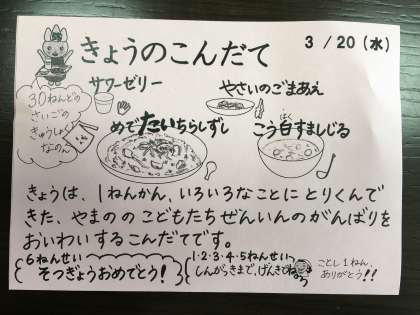 きょうのこんだて
3/20(水)
サワーゼリー
やさいのごまあえ
30ねんどの
さいごの
きゅうしょく
なのん
めでたいちらしずし
こう白すましじる
はく
きょうは、1ねんかん、いろいろなことにとりくんで
きた、やまののこどもたちぜんいんのがんばりを
おいわいするこんだてです。
6ねんせい
そつぎょうおめでとう!
1・2・3・4・5ねんせい
しんがっきまで、げんきでね
ことし1ねん、
ありがとう!!